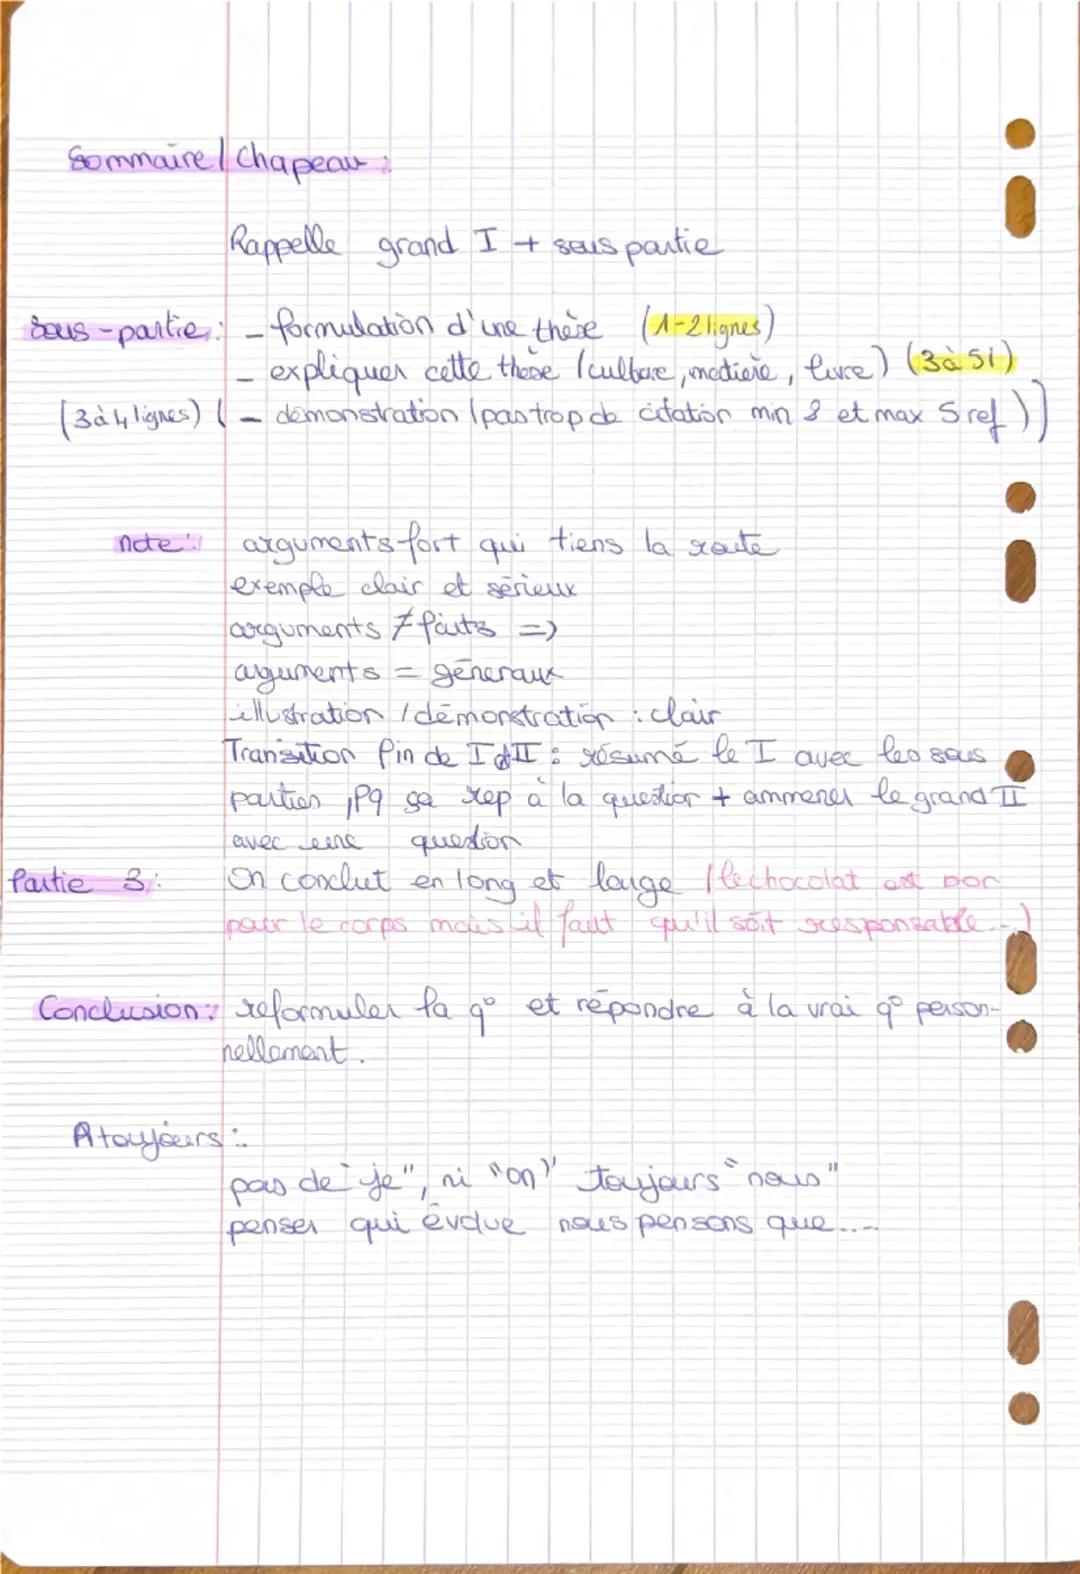 Sommaire / Chapeau :
Rappelle grand I + sous partie
Sous-partie : - formulation d'une thèse (1-2 lignes)
- expliquer cette thèse (culture, metière, livre) (3 à 5l)
(3 à 4 lignes) ( - démonstration (pas trop de citation min 3 et max 5 ref ))
note : arguments fort qui tiens la route
exemple clair et sérieux
arguments ≠ faits =>
arguments = généraux
illustration / démonstration : clair
Transition fin de I et II : résumé le I avec les sous
parties, pq ça rep à la question + ammener le grand II
avec une question
Partie 3 : On conclut en long et large (le chocolat est bon
pour le corps mais il faut qu'il soit responsable...)
Conclusion : reformuler la q° et répondre à la vrai q° person-
nellement.
A toujours :
pas de "je", ni "on" toujours "nous"
penser qui évolue nous pensons que...